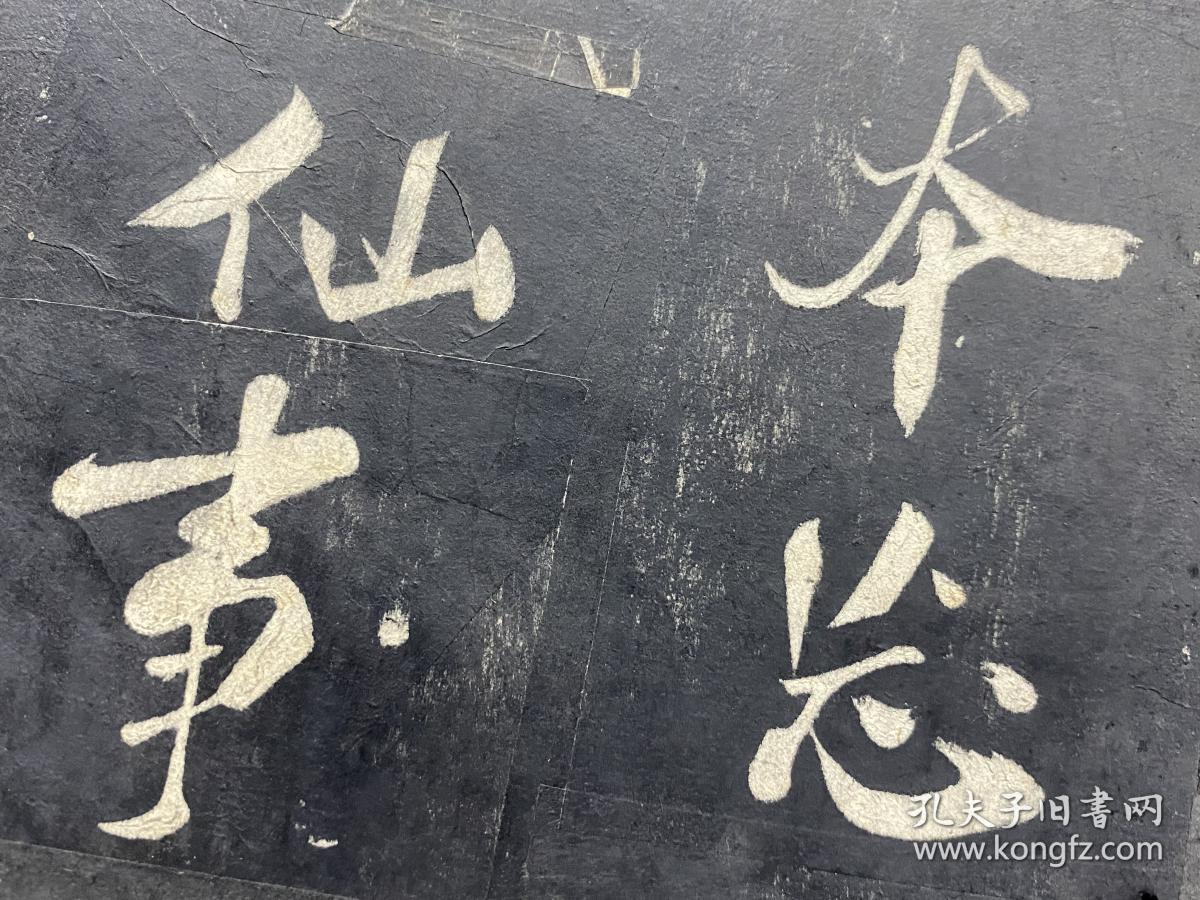 本
仙事
孔夫子旧書网
www.kongfz.com